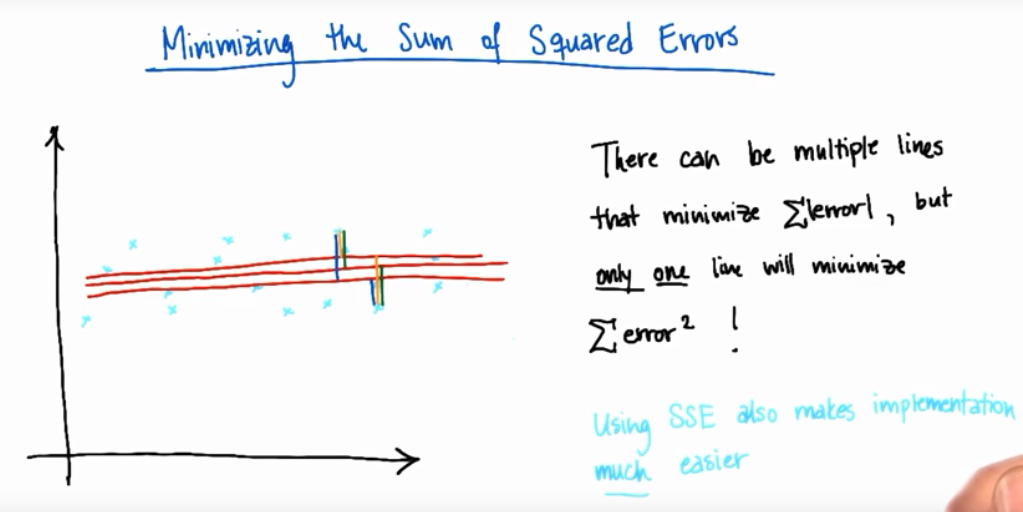 Minimizing the Sum of Squared Errors
There can be multiple lines
that minimize Σ|error|, but
only one line will minimize
Σerror² !
Using SSE also makes implementation
much easier